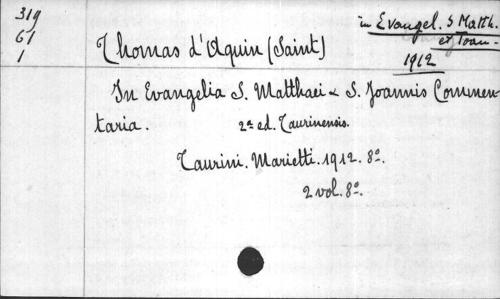 319
61
1
in Evangel. S Matth.
et Joan.
1912
Thomas d'Aquin (Saint)
In Evangelia S. Matthaei & S. Joannis Commen
taria. 2a ed. Taurinensis.
Taurini. Marietti. 1912. 8º.
2 vol. 8º.